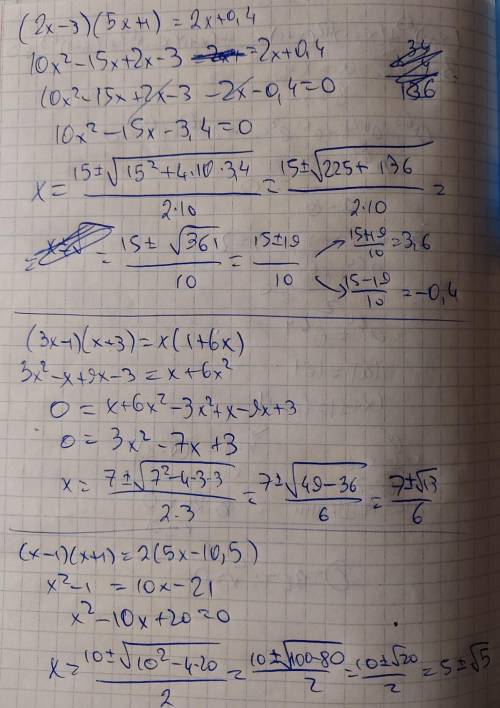 (2x-3)(5x+1) = 2x+0,4
10x²-15x+2x-3 = 2x+0,4
10x²-15x+2x-3 -2x-0,4=0
10x²-15x-3,4=0
x = (15±√(15²+4·10·3,4))/(2·10) = (15±√(225+136))/(2·10) =
= (15±√361)/10 = (15±19)/10 → (15+19)/10 = 3,6
→ (15-19)/10 = -0,4
(3x-1)(x+3) = x(1+6x)
3x²-x+9x-3 = x+6x²
0 = x+6x²-3x²+x-9x+3
0 = 3x²-7x+3
x = (7±√(7²-4·3·3))/(2·3) = (7±√(49-36))/6 = (7±√13)/6
(x-1)(x+1) = 2(5x-10,5)
x²-1 = 10x-21
x²-10x+20=0
x = (10±√(10²-4·20))/2 = (10±√(100-80))/2 = (10±√20)/2 = 5±√5